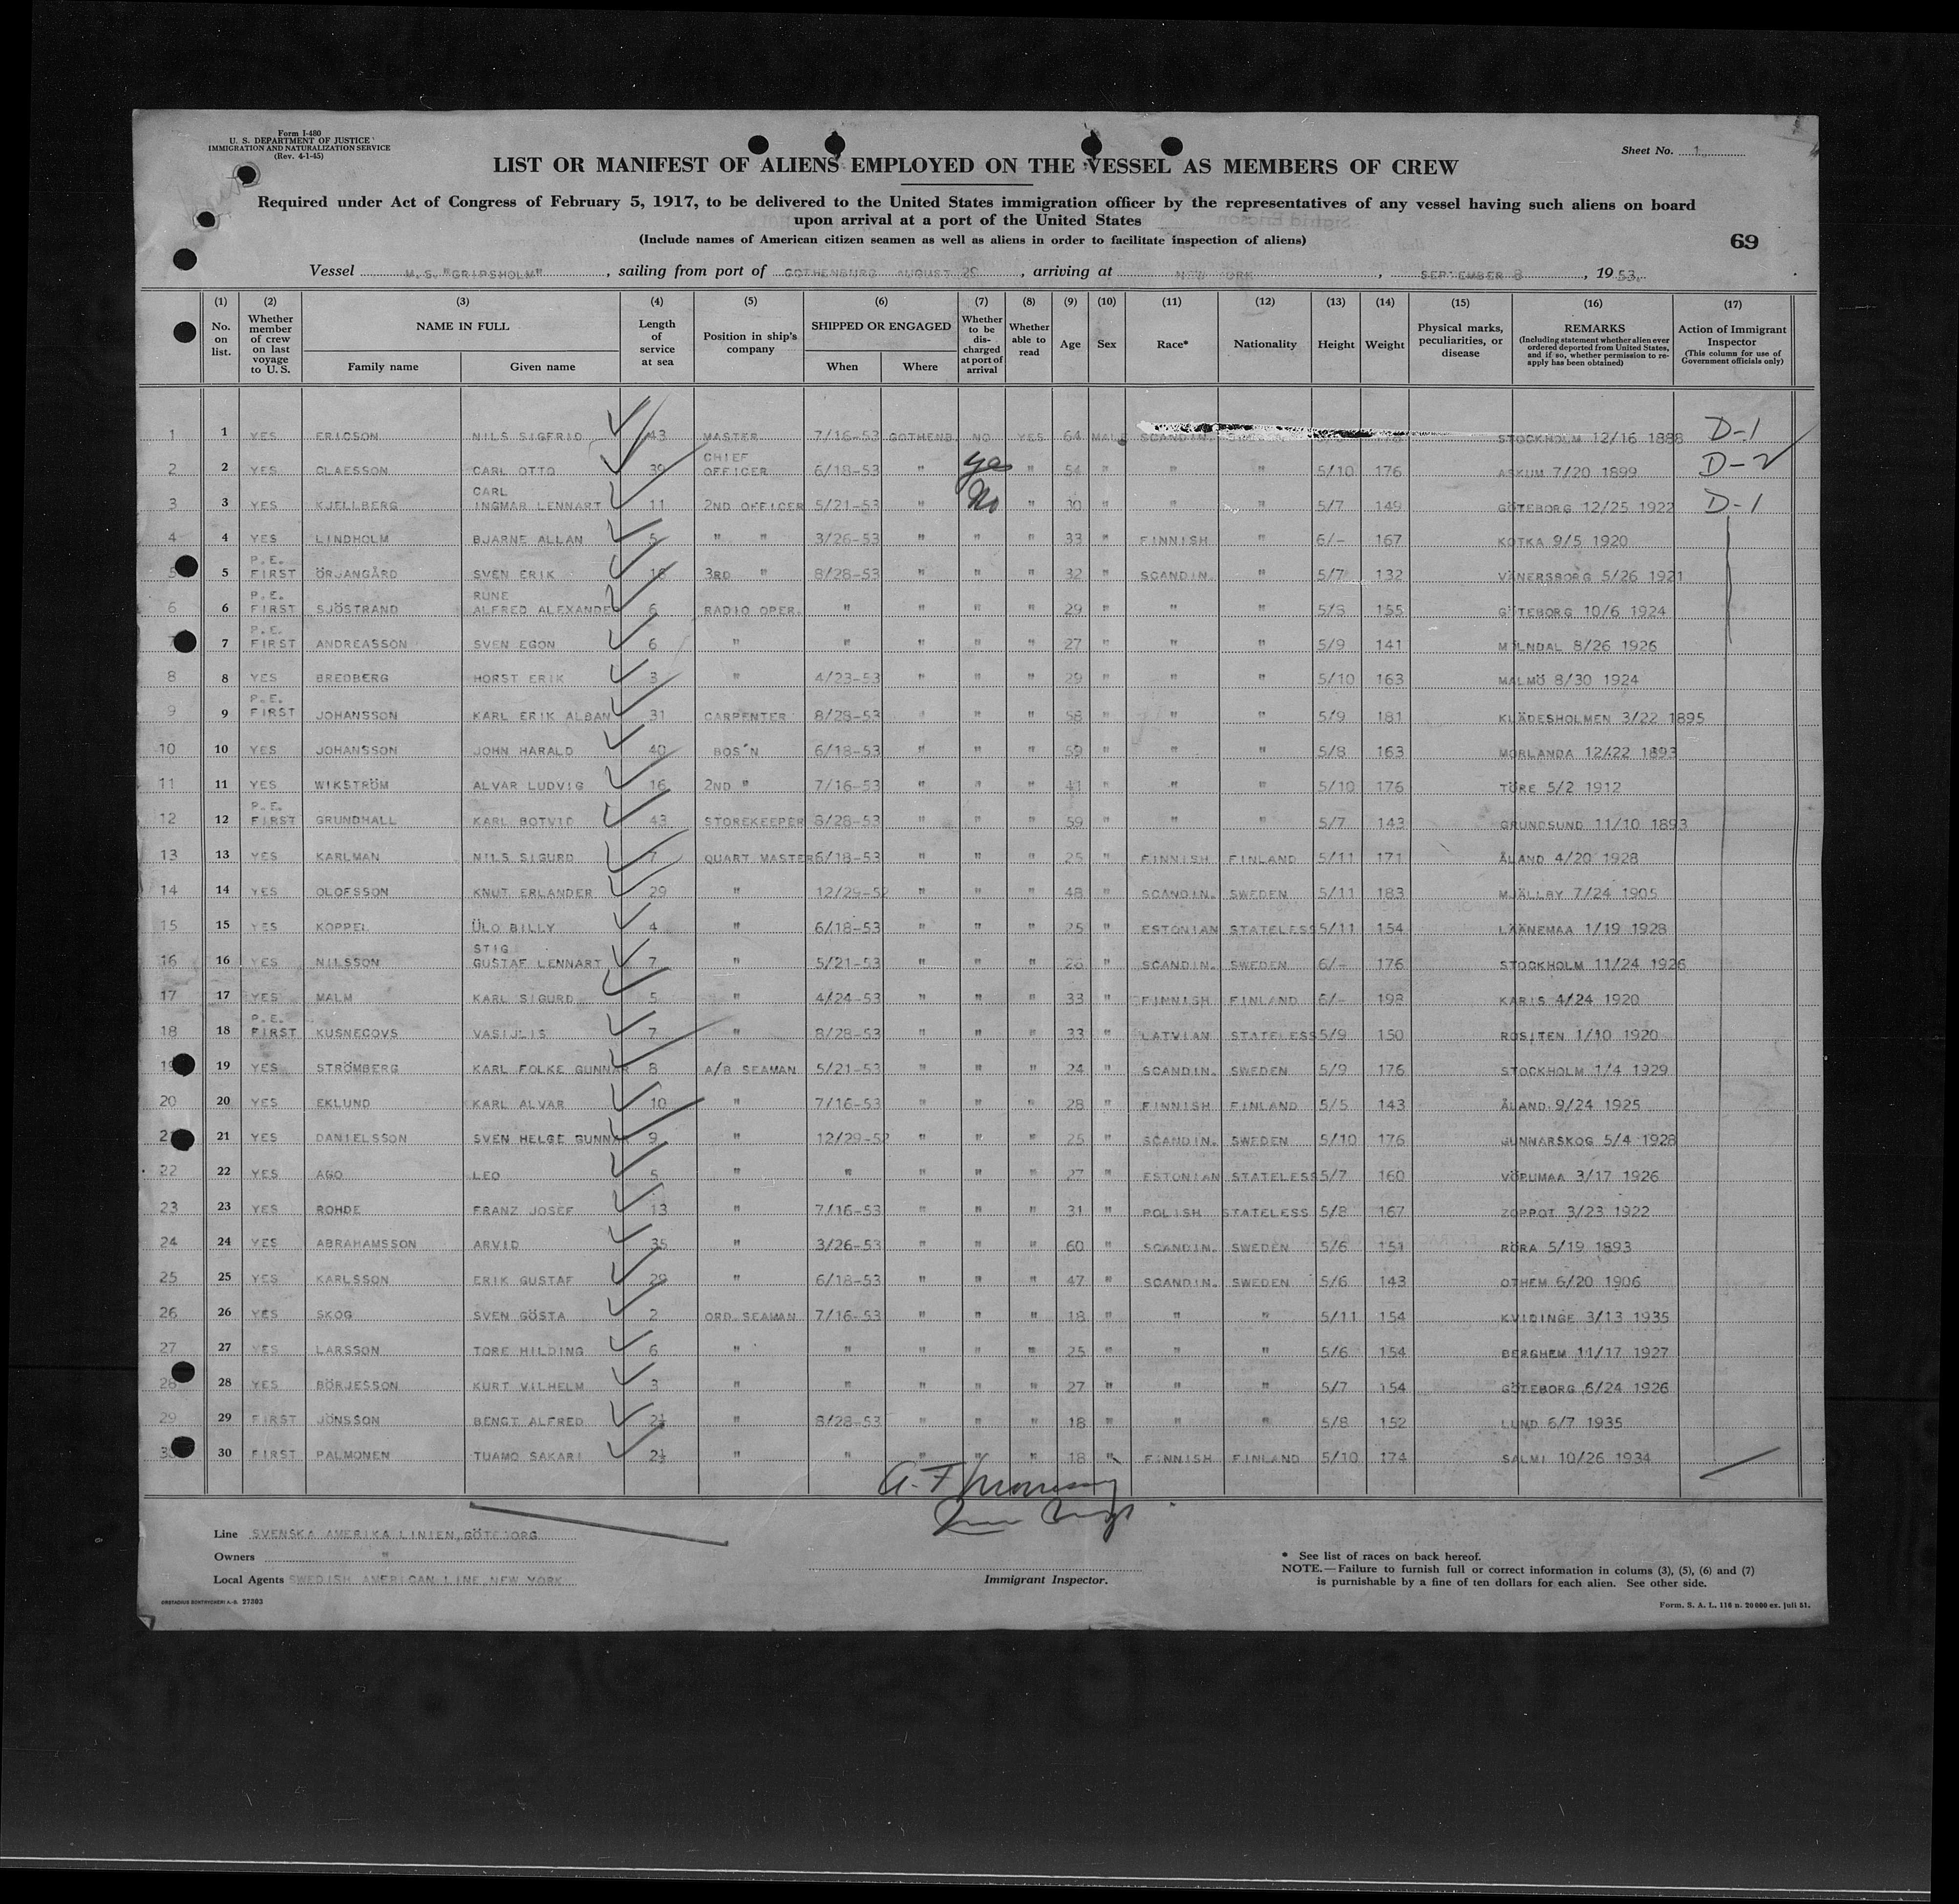 Form I-480
U. S. DEPARTMENT OF JUSTICE
IMMIGRATION AND NATURALIZATION SERVICE
(Rev. 4-1-45)
Sheet No. 1
LIST OR MANIFEST OF ALIENS EMPLOYED ON THE VESSEL AS MEMBERS OF CREW
Required under Act of Congress of February 5, 1917, to be delivered to the United States immigration officer by the representatives of any vessel having such aliens on board
upon arrival at a port of the United States
(Include names of American citizen seamen as well as aliens in order to facilitate inspection of aliens)
69
Vessel M.S. "GRIPSHOLM", sailing from port of GOTHENBURG AUGUST 29, arriving at NEW YORK, SEPTEMBER 8, 1953.
(1) (2) (3) (4) (5) (6) (7) (8) (9) (10) (11) (12) (13) (14) (15) (16) (17)
No. on list. Whether member of crew on last voyage to U. S. NAME IN FULL Family name Given name Length of service at sea Position in ship's company SHIPPED OR ENGAGED When Where Whether to be discharged at port of arrival Whether able to read Age Sex Race* Nationality Height Weight Physical marks, peculiarities, or disease REMARKS (Including statement whether alien ever ordered deported from United States, and if so, whether permission to re-apply has been obtained) Action of Immigrant Inspector (This column for use of Government officials only)
1 1 YES ERICSON NILS SIGFRID 43 MASTER 7/16-53 GOTHENB. NO YES 64 MALE SCANDIN. STOCKHOLM 12/16 1888 D-1
2 2 YES CLAESSON CARL OTTO 39 CHIEF OFFICER 6/18-53 " yes " 54 " " " 5/10 176 ASKUM 7/20 1899 D-2
3 3 YES KJELLBERG CARL INGMAR LENNART 11 2ND OFFICER 5/21-53 " No " 30 " " " 5/7 149 GÖTEBORG 12/25 1922 D-1
4 4 YES LINDHOLM BJARNE ALLAN 5 " " 3/26-53 " " " 33 " FINNISH " 6/- 167 KOTKA 9/5 1920
5 5 P.E. FIRST ÖRJANGÅRD SVEN ERIK 18 3RD " 8/28-53 " " " 32 " SCANDIN. " 5/7 132 VÄNERSBORG 5/26 1921
6 6 P.E. FIRST SJÖSTRAND RUNE ALFRED ALEXANDER 6 RADIO OPER. " " " " 29 " " " 5/8 155 GÖTEBORG 10/6 1924
7 7 P.E. FIRST ANDREASSON SVEN EGON 6 " " " " " 27 " " " 5/9 141 MÖLNDAL 8/26 1926
8 8 YES BREDBERG HORST ERIK 3 " 4/23-53 " " " 29 " " " 5/10 163 MALMÖ 8/30 1924
9 9 P.E. FIRST JOHANSSON KARL ERIK ALBAN 31 CARPENTER 8/28-53 " " " 58 " " " 5/9 181 KLÄDESHOLMEN 3/22 1895
10 10 YES JOHANSSON JOHN HARALD 40 BOS'N 6/18-53 " " " 59 " " " 5/8 163 MORLANDA 12/22 1893
11 11 YES WIKSTRÖM ALVAR LUDVIG 16 2ND " 7/16-53 " " " 41 " " " 5/10 176 TÖRE 5/2 1912
12 12 P.E. FIRST GRUNDHALL KARL BOTVID 43 STOREKEEPER 8/28-53 " " " 59 " " " 5/7 143 GRUNDSUND 11/10 1893
13 13 YES KARLMAN NILS SIGURD 7 QUART MASTER 6/18-53 " " " 25 " FINNISH FINLAND 5/11 171 ÅLAND 4/20 1928
14 14 YES OLOFSSON KNUT ERLANDER 29 " 12/29-52 " " " 48 " SCANDIN. SWEDEN 5/11 183 MJÄLLBY 7/24 1905
15 15 YES KOPPEL ÜLO BILLY 4 " 6/18-53 " " " 25 " ESTONIAN STATELESS 5/11 154 LÄÄNEMAA 1/19 1928
16 16 YES NILSSON STIG GUSTAF LENNART 7 " 5/21-53 " " " 26 " SCANDIN. SWEDEN 6/- 176 STOCKHOLM 11/24 1926
17 17 YES MALM KARL SIGURD 5 " 4/24-53 " " " 33 " FINNISH FINLAND 6/- 198 KARIS 4/24 1920
18 18 P.E. FIRST KUSNECOVS VASIJLIS 7 " 8/28-53 " " " 33 " LATVIAN STATELESS 5/9 150 ROSITEN 1/10 1920
19 19 YES STRÖMBERG KARL FOLKE GUNNAR 8 A/B SEAMAN 5/21-53 " " " 24 " SCANDIN. SWEDEN 5/9 176 STOCKHOLM 1/4 1929
20 20 YES EKLUND KARL ALVAR 10 " 7/16-53 " " " 28 " FINNISH FINLAND 5/5 143 ÅLAND 9/24 1925
21 21 YES DANIELSSON SVEN HELGE GUNNAR 9 " 12/29-52 " " " 25 " SCANDIN. SWEDEN 5/10 176 GUNNARSKOG 5/4 1928
22 22 YES AGO LEO 5 " " " " " 27 " ESTONIAN STATELESS 5/7 160 VÖRUMAA 3/17 1926
23 23 YES ROHDE FRANZ JOSEF 13 " 7/16-53 " " " 31 " POLISH STATELESS 5/8 167 ZOPPOT 3/23 1922
24 24 YES ABRAHAMSSON ARVID 35 " 3/26-53 " " " 60 " SCANDIN. SWEDEN 5/6 151 RÖRA 5/19 1893
25 25 YES KARLSSON ERIK GUSTAF 29 " 6/18-53 " " " 47 " SCANDIN. SWEDEN 5/6 143 OTHEM 6/20 1906
26 26 YES SKOG SVEN GÖSTA 2 ORD. SEAMAN 7/16-53 " " " 18 " " " 5/11 154 KVIDINGE 3/13 1935
27 27 YES LARSSON TORE HILDING 6 " " " " " 25 " " " 5/6 154 BERGHEM 11/17 1927
28 28 YES BÖRJESSON KURT VILHELM 3 " " " " " 27 " " " 5/7 154 GÖTEBORG 6/24 1926
29 29 FIRST JÖNSSON BENGT ALFRED 2½ " 8/28-53 " " " 18 " " " 5/8 152 LUND 6/7 1935
30 30 FIRST PALMONEN TUAMO SAKARI 2½ " " " " " 18 " FINNISH FINLAND 5/10 174 SALMI 10/26 1934
Line SVENSKA AMERIKA LINIEN, GÖTEBORG
Owners "
Local Agents SWEDISH AMERICAN LINE, NEW YORK
Immigrant Inspector.
* See list of races on back hereof.
NOTE.—Failure to furnish full or correct information in colums (3), (5), (6) and (7)
is punishable by a fine of ten dollars for each alien. See other side.
27303
Form. S. A. L. 116 n. 20000 ex. juli 51.